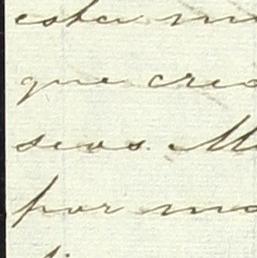 esta
que cre
seos. M
por ma